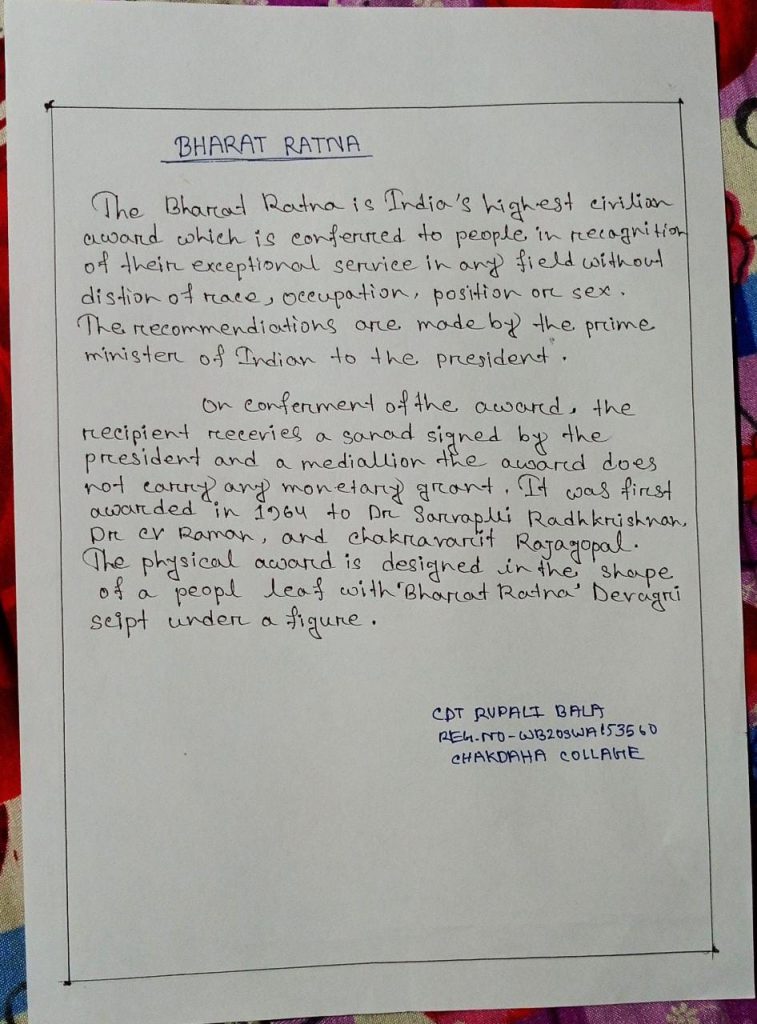 BHARAT RATNA
The Bharat Ratna is India's highest civilian
award which is conferred to people in recagnition
of their exceptional service in any field without
distion of race, occupation, position or sex.
The recommendiations are made by the prime
minister of Indian to the president.
On conferment of the award, the
recipient receries a sanad signed by the
president and a mediallion the award does
not carry any monetary grant. It was first
awarded in 1964 to Dr Sarvaplli Radhkrishnan,
Dr CV Raman, and chakravarit Rajagopal.
The physical award is designed in the shape
of a peopl leaf with 'Bharat Ratna' Devagri
scipt under a figure.
CDT RUPALI BALA
REG.NO-WB20SWA153560
CHAKDAHA COLLAGE